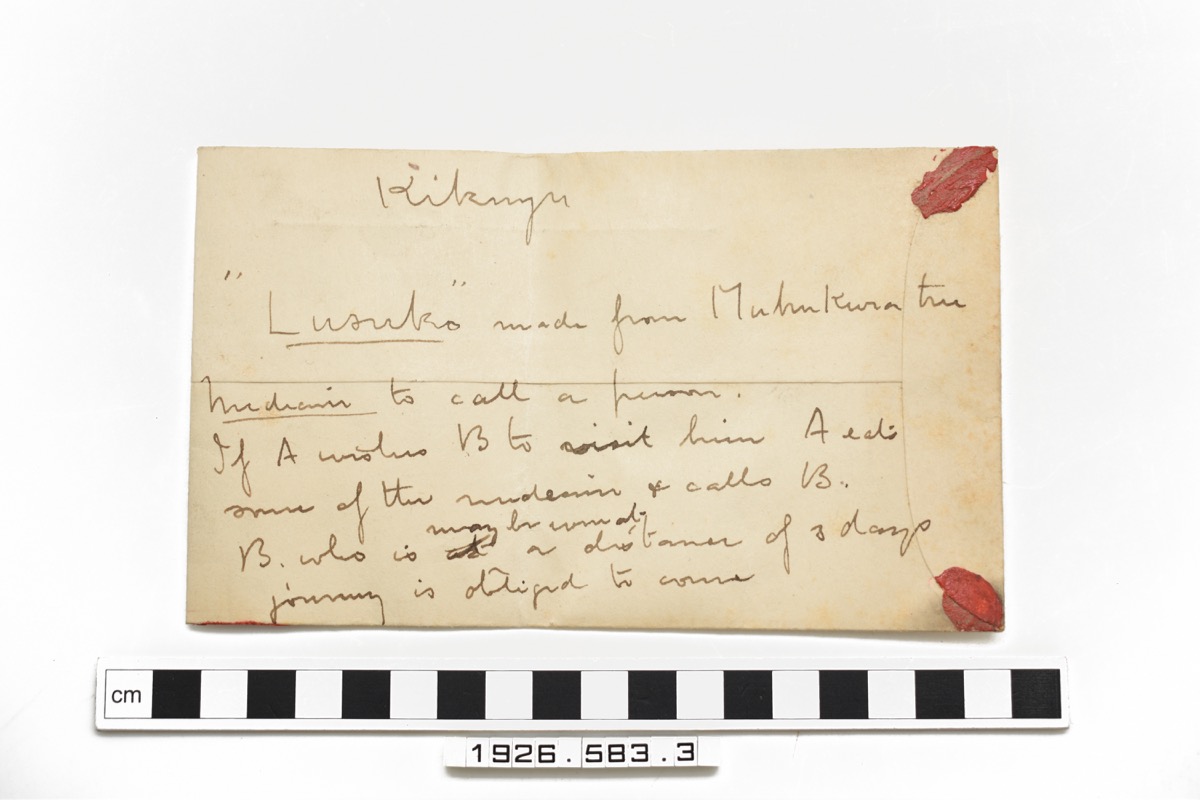 Kikuyu
"Lusuko" made from Muhukura tree
Medicine to call a person.
If A wishes B to visit him A eats
some of the medecine & calls B.
may be
B. who is a distance of 3 days
journey is obliged to come
cm
1926.583.3